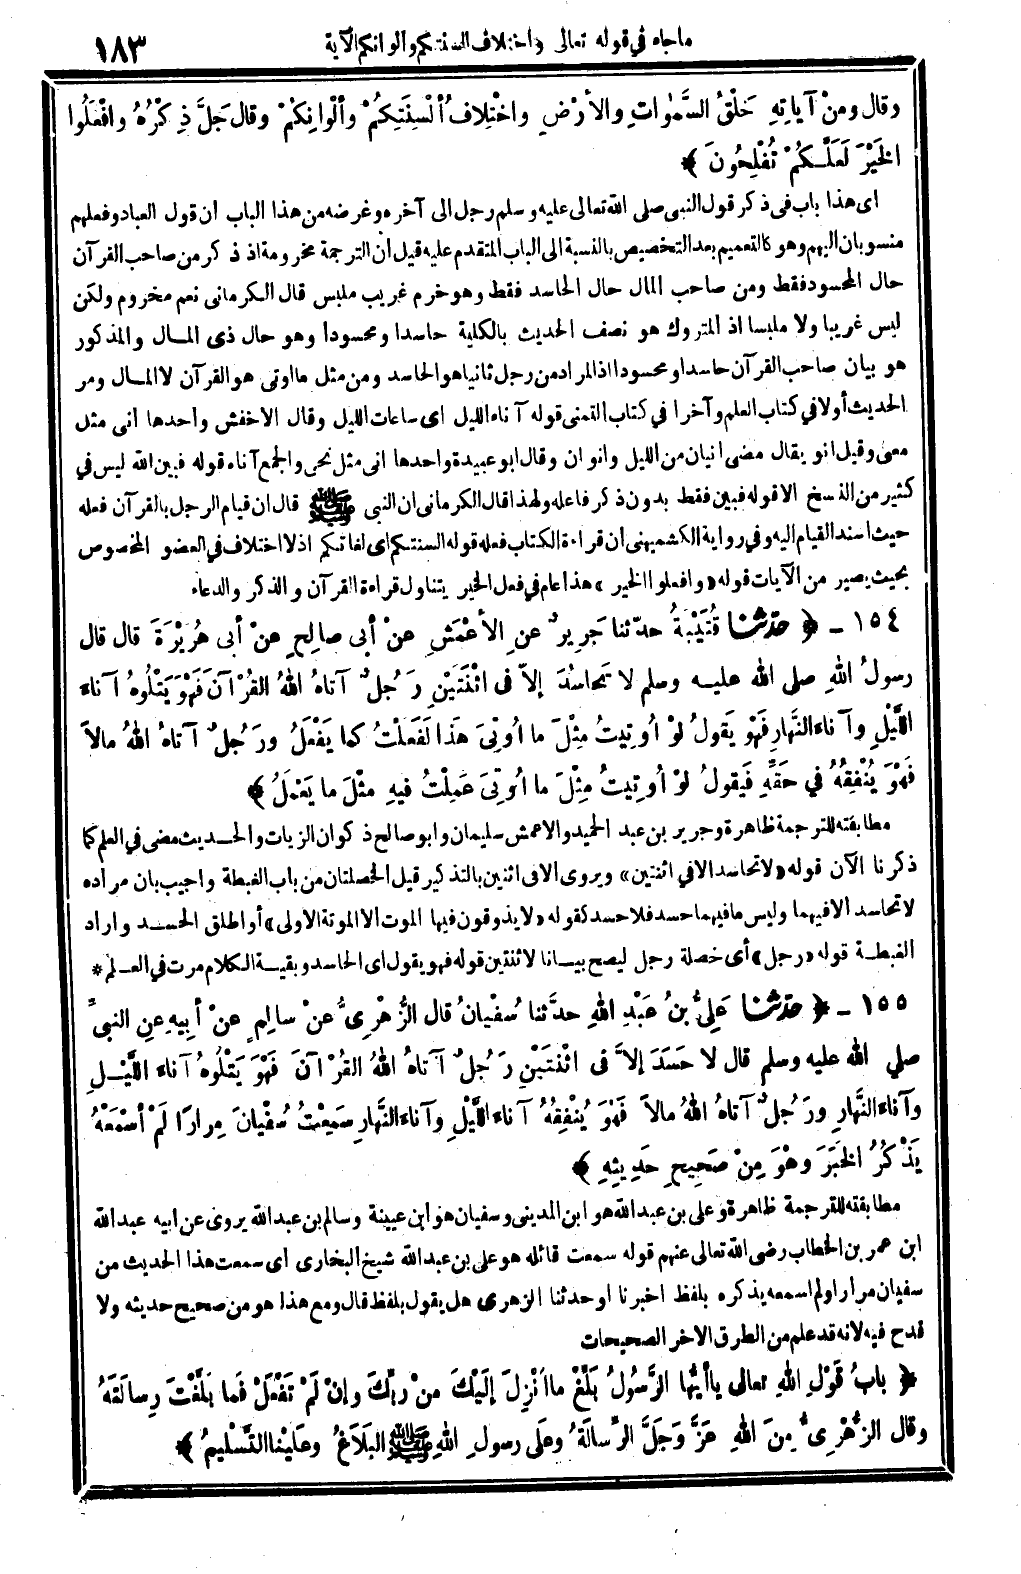 ما جاء في قوله تعالى واختلاف السنتكم والوانكم الآية
١٨٣
وقال ومنْ آياتِهِ خَلْقُ السَّمٰوَاتِ والأرْضِ واخْتِلافُ ألْسِنَتِكُمْ وألْوَانِكُمْ وقال جَلَّ ذِكْرُهُ وافْعَلُوا
الخَيْرَ لَعَلَّكُمْ تُفْلِحُونَ ﴾
اى هذا باب فى ذكر قول النبى صلى الله تعالى عليه وسلم رجل الى آخره وغرضه من هذا الباب ان قول العباد وفعلهم
منسوبان اليهم وهو كالتعميم بعد التخصيص بالنسبة الى الباب المتقدم عليه قيل أن الترجمة مخرومة اذ ذكر من صاحب القرآن
حال المحسود فقط ومن صاحب المال حال الحاسد فقط وهو خرم غريب ملبس قال الكرمانى نعم مخروم ولكن
ليس غريبا ولا ملبسا اذ المتروك هو نصف الحديث بالكلية حاسدا ومحسودا وهو حال ذى المال والمذكور
هو بيان صاحب القرآن حاسدا ومحسودا اذ المراد من رجل ثانيا هو الحاسد ومن مثل ما اوتى هو القرآن لا المال ومر
الحديث أولا في كتاب العلم وآخرا في كتاب التمنى قوله آناء الليل اى ساعات الليل وقال الاخفش واحدها انى مثل
معى وقيل انو يقال مضى انيان من الليل وانوان وقال ابو عبيدة واحدها انى مثل نحى والجمع آناء قوله فبين الله ليس في
كثير من النسخ الا قوله فبين فقط بدون ذكر فاعله ولهذا قال الكرمانى ان النبى ﷺ قال ان قيام الرجل بالقرآن فعله
حيث اسند القيام اليه وفي رواية الكشميهنى ان قراءة الكتاب فعله قوله السنتكم اى لغاتكم اذ لا اختلاف في العضو المخصوص
بحيث يصير من الآيات قوله «وافعلوا الخير» هذا عام في فعل الخير يتناول قراءة القرآن والذكر والدعاء
١٥٤ ـ ﴿ حَدَّثَنَا قُتَيْبَةُ حدّثنا جَرِيرٌ عنِ الأَعْمَشِ عنْ أبى صالِحٍ عنْ أبى هُرَيْرَةَ قال قال
رسولُ اللهِ صلى الله عليه وسلم لا تَحاسُدَ إلاّ فى اثْنَتَيْنِ رَجُلٌ آتاهُ اللهُ القُرْآنَ فَهْوَ يَتْلُوهُ آناءَ
اللَّيْلِ وآناءَ النَّهارِ فَهْوَ يَقولُ لوْ أُوتِيتُ مِثْلَ ما أُوتِىَ هَذَا لَفَعَلْتُ كما يَفْعَلُ ورَجُلٌ آتاهُ اللهُ مالاً
فَهْوَ يُنْفِقُهُ في حَقِّهِ فَيَقولُ لوْ أُوتِيتُ مِثْلَ ما أُوتِىَ عَمِلْتُ فيهِ مِثْلَ ما يَعْمَلُ ﴾
مطابقته للترجمة ظاهرة وجرير بن عبد الحميد والاعمش سليمان وابو صالح ذكوان الزيات والحديث مضى في العلم كما
ذكرنا الآن قوله «لا تحاسد الا في اثنتين» ويروى الا فى اثنين بالتذكير قيل الخصلتان من باب الغبطة واجيب بان مراده
لا تحاسد الا فيهما وليس ما فيهما حسد فلا حسد كقوله «لا يذوقون فيها الموت الا الموتة الاولى» أو اطلق الحسد واراد
الغبطة قوله «رجل» أى خصلة رجل ليصح بيانا لاثنتين قوله فهو يقول اى الحاسد وبقية الكلام مرت في العلم *
١٥٥ ـ ﴿ حَدَّثَنَا عَلِىُّ بنُ عَبْدِ اللهِ حدَّثنا سُفْيانُ قال الزُّهْرِىُّ عنْ سالِمٍ عنْ أبِيهِ عنِ النبىِّ
صلي الله عليه وسلم قال لا حَسَدَ إلاَّ فى اثْنَتَيْنِ رَجُلٌ آتاهُ اللهُ القُرْآنَ فَهْوَ يَتْلُوهُ آناءَ اللَّيْلِ
وآناءَ النَّهارِ ورَجُلٌ آتاهُ اللهُ مالاً فَهْوَ يُنْفِقُهُ آناءَ اللَّيْلِ وآناءَ النَّهارِ سَمِعْتُ سُفْيانَ مِرارًا لَمْ أسْمَعْهُ
يَذْكُرُ الخَبَرَ وهْوَ مِنْ صَحِيحِ حَدِيثِهِ ﴾
مطابقته للترجمة ظاهرة وعلى بن عبد الله هو ابن المدينى وسفيان هو ابن عيينة وسالم بن عبد الله يروى عن ابيه عبد الله
ابن عمر بن الخطاب رضى الله تعالى عنهم قوله سمعت قائله هو على بن عبد الله شيخ البخارى اى سمعت هذا الحديث من
سفيان مرارا ولم اسمعه يذكره بلفظ اخبرنا او حدثنا الزهرى هل يقول بلفظ قال ومع هذا هو من صحيح حديثه ولا
قدح فيه لانه قد علم من الطرق الاخر الصحيحات
﴿ بابُ قَوْلِ اللهِ تعالى ياأيُّها الرَّسُولُ بَلِّغْ ما اُنْزِلَ إلَيْكَ مِنْ رَبِّكَ وإنْ لَمْ تَفْعَلْ فَما بَلَّغْتَ رِسالَتَهُ
وقال الزُّهْرِىُّ مِنَ اللهِ عَزَّ وَجَلَّ الرِّسالَةُ وعلَى رسولِ اللهِ ﷺ البَلاَغُ وعَلَيْنا التَّسْلِيمُ ﴾